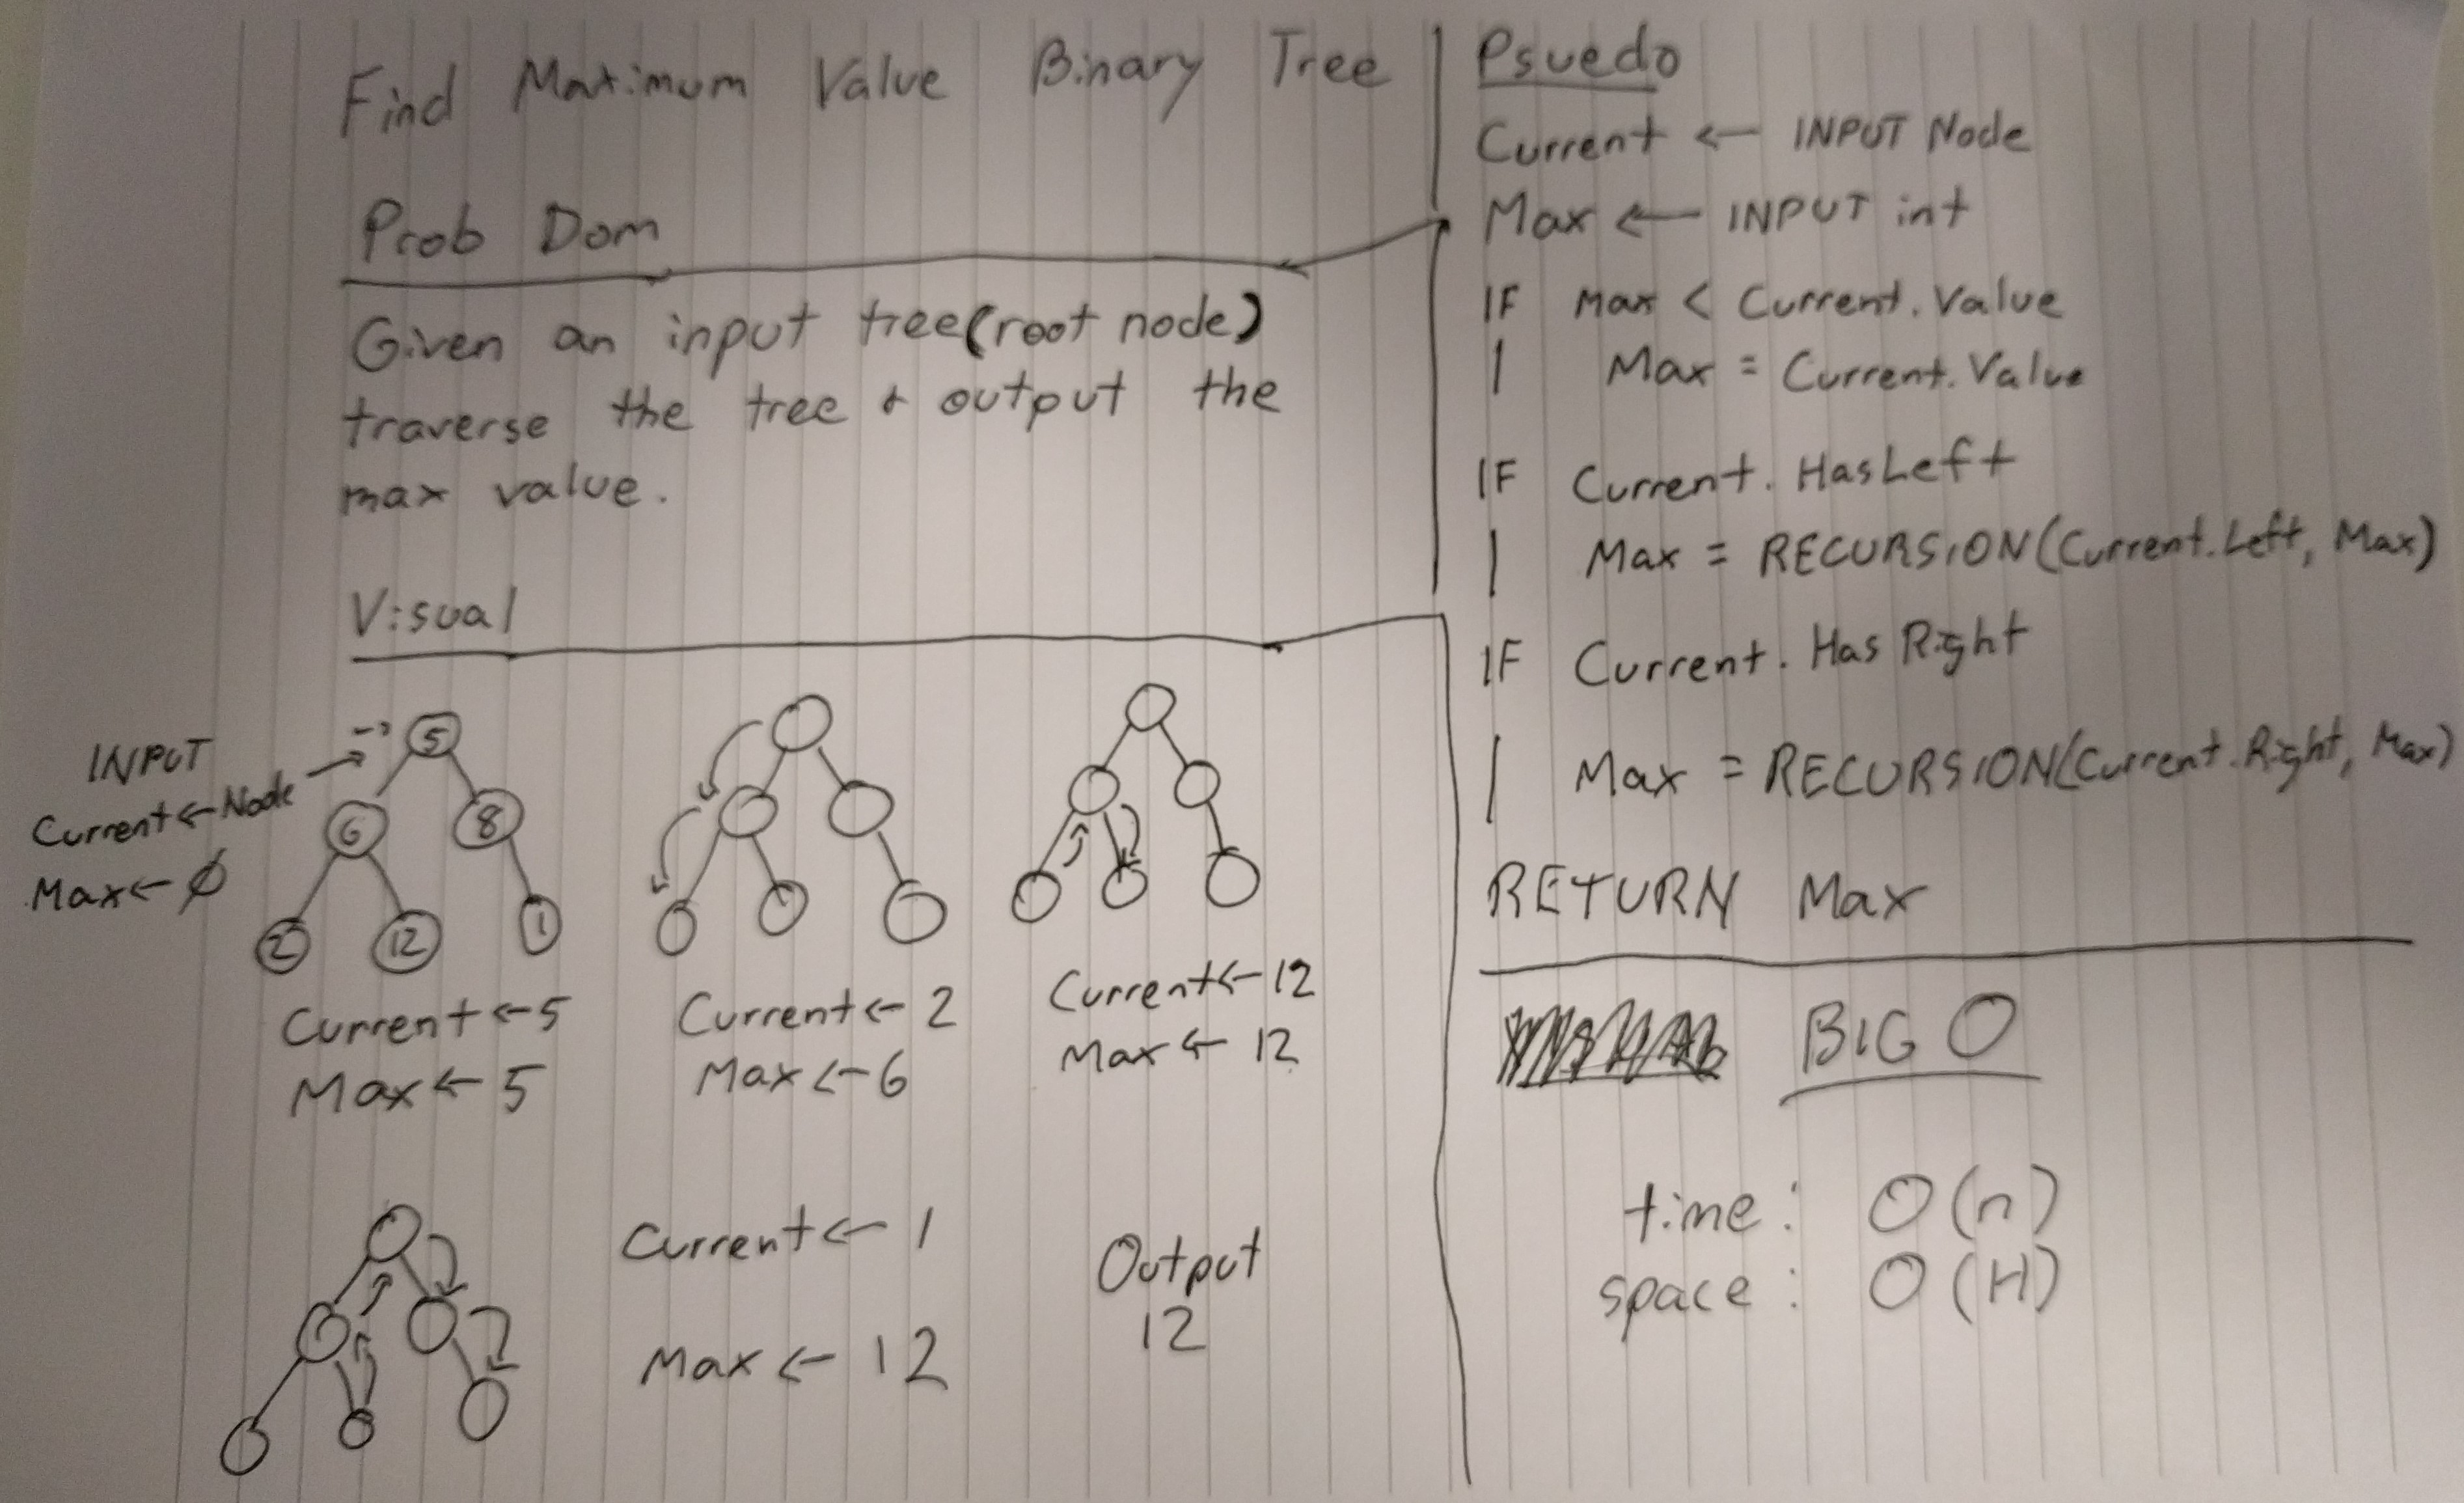 Find Maximum Value Binary Tree
Prob Dom
Given an input tree(root node)
traverse the tree + output the
max value.
Visual
INPUT
Current ← Node
Max ← Ø
5
6
8
2
12
1
Current ← 5
Max ← 5
Current ← 2
Max ← 6
Current ← 12
Max ← 12
Current ← 1
Max ← 12
Output
12
Psuedo
Current ← INPUT Node
Max ← INPUT int
IF Max < Current.Value
Max = Current.Value
IF Current.HasLeft
Max = RECURSION(Current.Left, Max)
IF Current.HasRight
Max = RECURSION(Current.Right, Max)
RETURN Max
BIG O
time: O(n)
space: O(H)